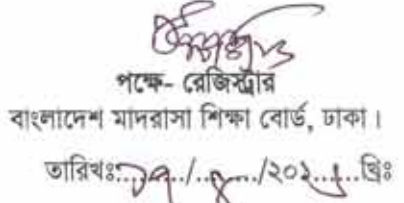 পক্ষে- রেজিস্ট্রার
বাংলাদেশ মাদরাসা শিক্ষা বোর্ড, ঢাকা।
তারিখঃ....../....../২০২......খ্রিঃ